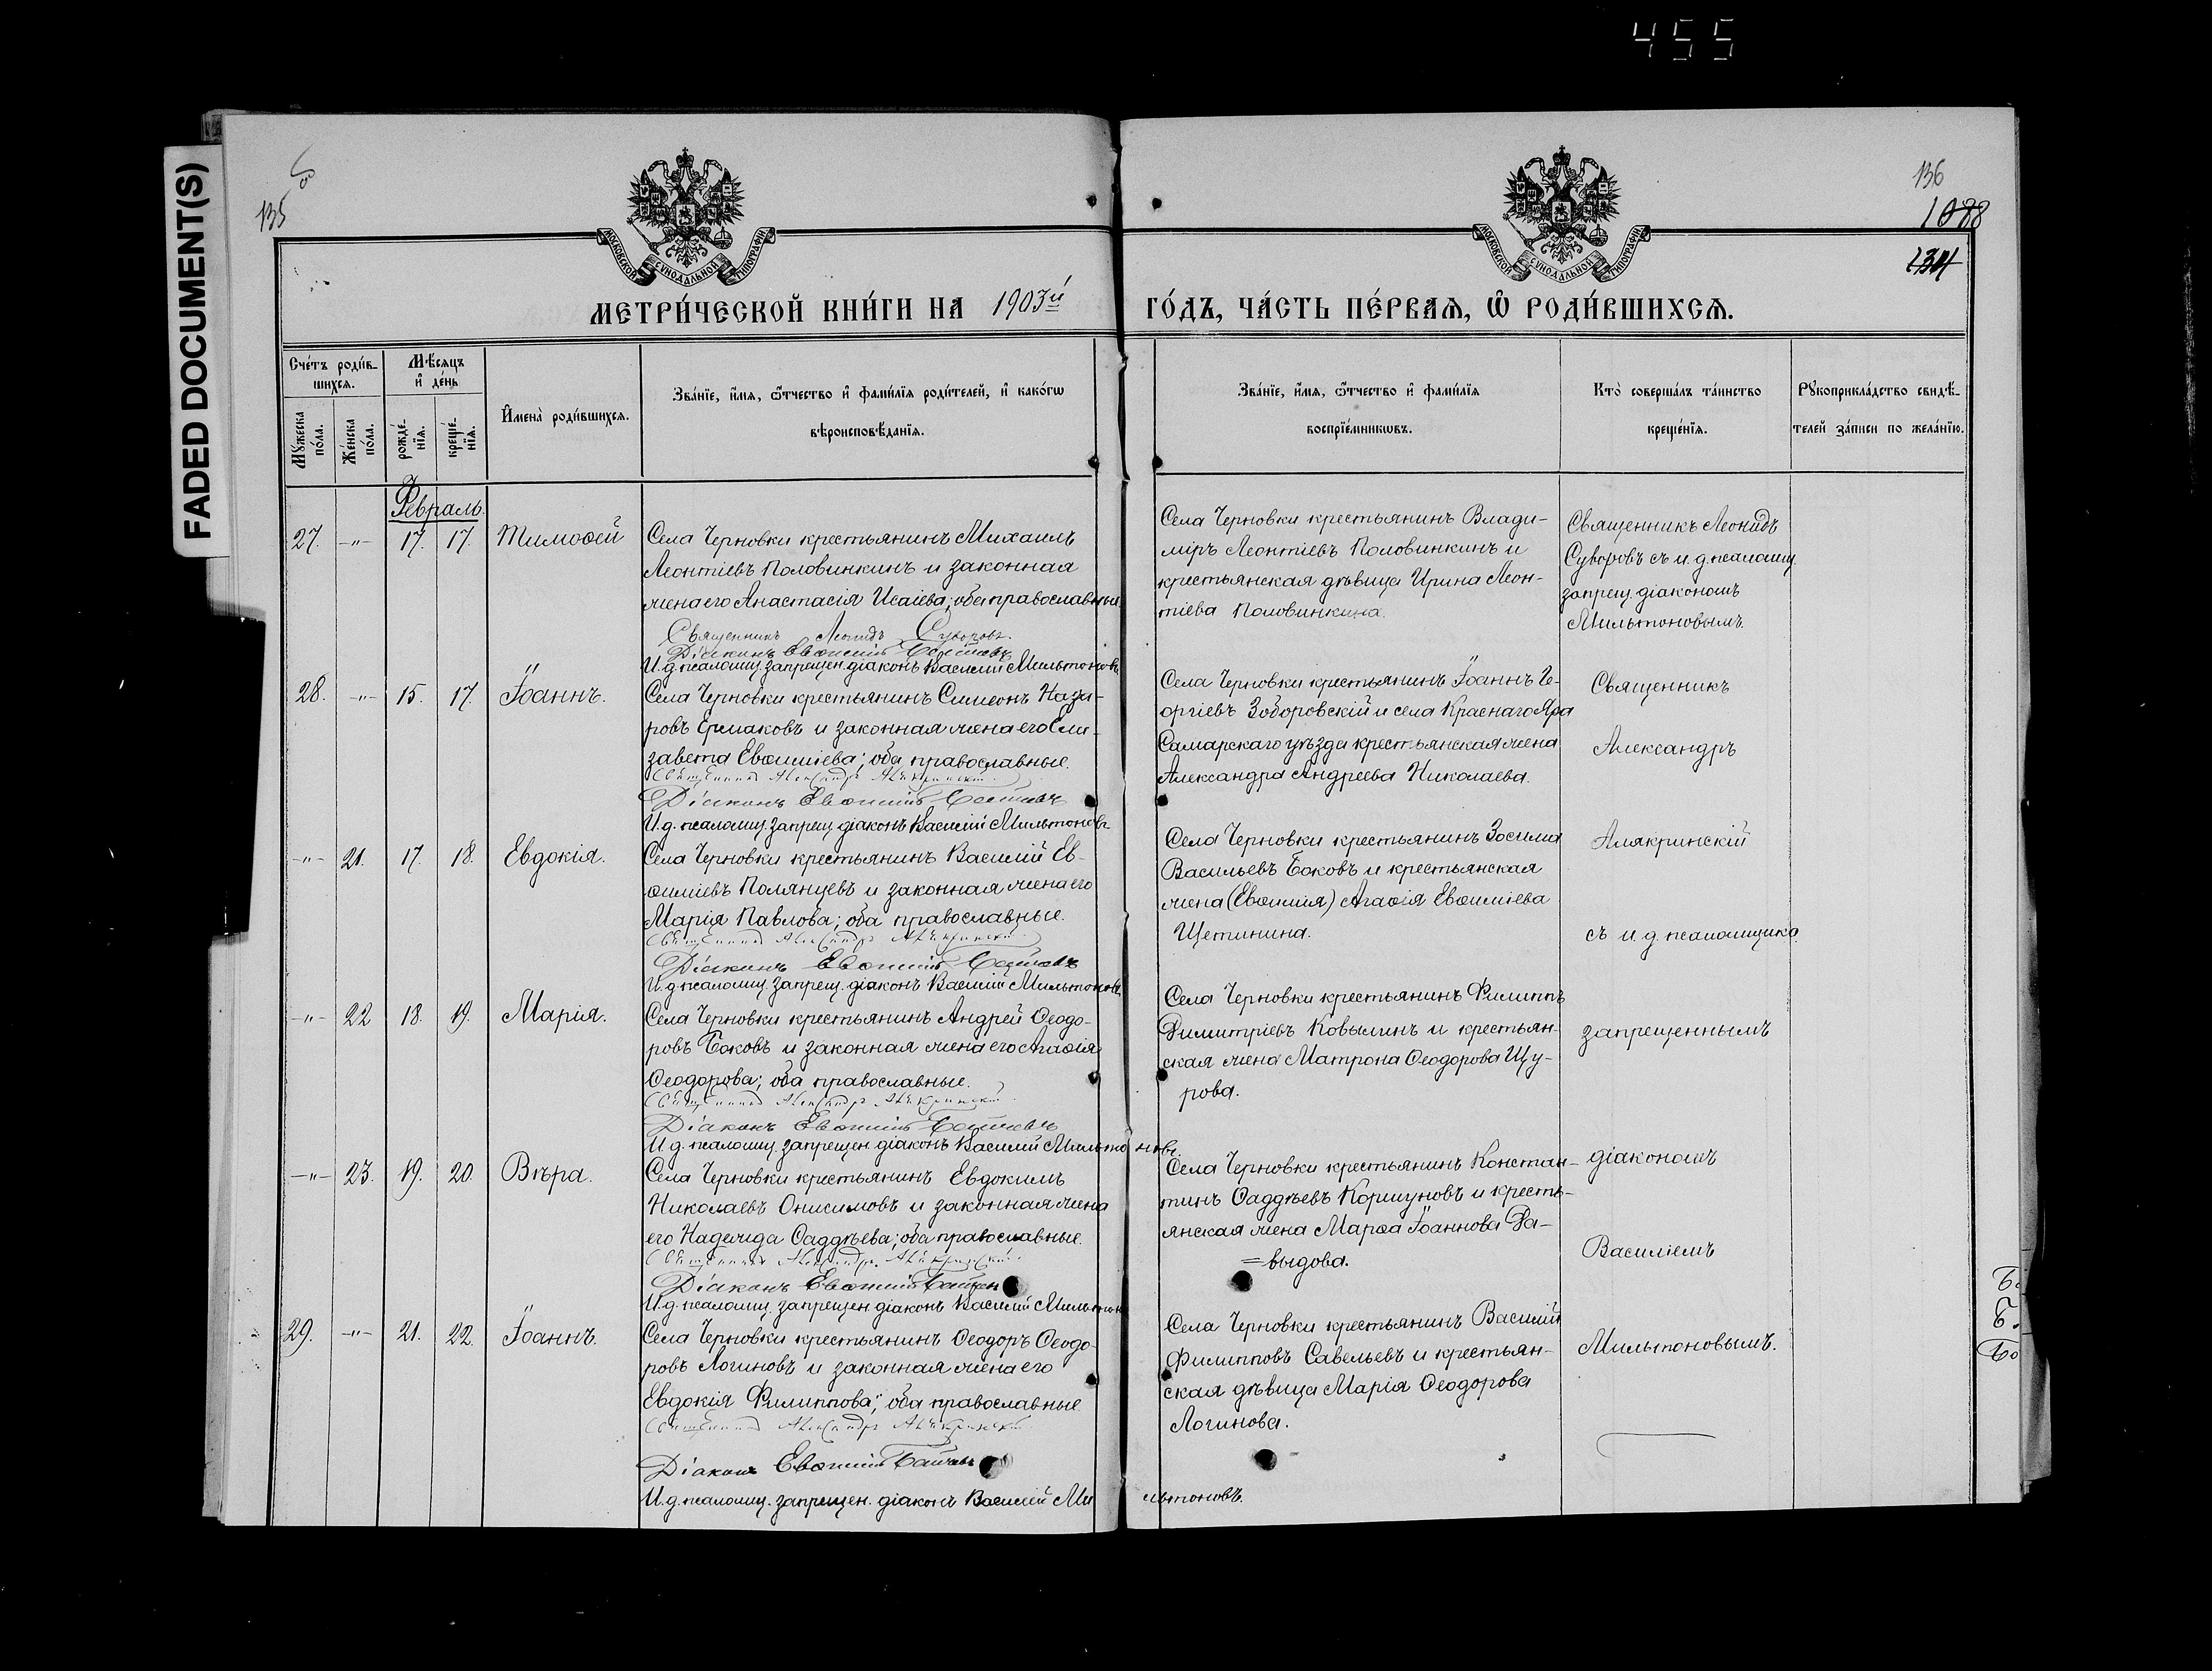 455
FADED DOCUMENT(S)
135
136
1088
134
МОСКОВСКОЙ СѴНОДАЛЬНОЙ ТИПОГРАФІИ
МОСКОВСКОЙ СѴНОДАЛЬНОЙ ТИПОГРАФІИ
МЕТРИ́ЧЕСКОЙ КНИ́ГИ НА 1903й ГО́ДЪ, ЧА́СТЬ ПЕ́РВАЯ, Ѿ РОДИ́ВШИХСЯ.
Сче́тъ роди́в-
шихся.
Мѣ́сяцъ
и҆ де́нь
Мꙋ́жеска по́ла.
Же́нска по́ла.
рожде́-
нїѧ.
креще́-
нїѧ.
И҆мена̀ роди́вшихся.
Зва́нїе, и҆́мѧ, ѻ҆́тчество и҆ фами́лїѧ роди́телей, и҆ како́гѡ
вѣроисповѣ́данїѧ.
Зва́нїе, и҆́мѧ, ѻ҆́тчество и҆ фами́лїѧ
воспрїе́мникѡвъ.
Кто̀ соверша́лъ та́инство
креще́нїѧ.
Рꙋкоприкла́дство свидѣ́-
телей за́писи по жела́нїю.
Февраль.
27. -"- 17. 17. Тимоѳей
Села Черновки крестьянинъ Михаилъ
Леонтіевъ Половинкинъ и законная
жена его Анастасія Исаіева; оба православные.
Священникъ Леонидъ Суворовъ.
Діаконъ Евѳимій
И.д. псаломщ. запрещен. діаконъ Василій Мильтоновъ
Села Черновки крестьянинъ Влади-
міръ Леонтіевъ Половинкинъ и
крестьянская дѣвица Ирина Леон-
тіева Половинкина.
Священникъ Леонидъ
Суворовъ съ и.д. псаломщ.
запрещ. діакономъ
Мильтоновымъ.
28. -"- 15. 17. Іоаннъ.
Села Черновки крестьянинъ Симеонъ Наза-
ровъ Ермаковъ и законная жена его Ели-
завета Евѳиміева; оба православные.
Священникъ Александръ Алякринскій
Діаконъ Евѳимій
И.д. псаломщ. запрещ. діаконъ Василій Мильтоновъ
Села Черновки крестьянинъ Іоаннъ Ге-
оргіевъ Зоборовскій и села Краснаго Яра
Самарскаго уѣзда крестьянская жена
Александра Андреева Николаева.
Священникъ
Александръ
-"- 21. 17. 18. Евдокія.
Села Черновки крестьянинъ Василій Ев-
ѳиміевъ Полянцевъ и законная жена его
Марія Павлова; оба православные.
Священникъ Александръ Алякринскій
Діаконъ Евѳимій
И.д. псаломщ. запрещ. діаконъ Василій Мильтоновъ.
Села Черновки крестьянинъ Зосима
Васильевъ Боковъ и крестьянская
жена (Евѳимія) Агаѳія Евѳиміева
Щетинина.
Алякринскій
съ и.д. псаломщика
-"- 22 18. 19. Марія.
Села Черновки крестьянинъ Андрей Ѳеодо-
ровъ Боковъ и законная жена его Агаѳія
Ѳеодорова; оба православные.
Священникъ Александръ Алякринскій
Діаконъ Евѳимій
И.д. псаломщ. запрещен. діаконъ Василій Мильтоновъ.
Села Черновки крестьянинъ Филиппъ
Димитріевъ Ковылинъ и крестьян-
ская жена Матрона Ѳеодорова Щу-
рова.
запрещеннымъ
-"- 23. 19. 20. Вѣра.
Села Черновки крестьянинъ Евдокимъ
Николаевъ Онисимовъ и законная жена
его Надежда Ѳаддѣева; оба православные.
Священникъ Александръ Алякринскій
Діаконъ Евѳимій
И.д. псаломщ. запрещен. діаконъ Василій Мильтонов
Села Черновки крестьянинъ Констан-
тинъ Ѳаддѣевъ Коршуновъ и кресть-
янская жена Марѳа Іоаннова Да-
=выдова.
діакономъ
Василіемъ
29. -"- 21. 22. Іоаннъ.
Села Черновки крестьянинъ Ѳеодоръ Ѳеодо-
ровъ Логиновъ и законная жена его
Евдокія Филиппова; оба православные
Священникъ Александръ Алякринскій
Діаконъ Евѳимій
И.д. псаломщ. запрещен. діаконъ Василій Мильтоновъ.
Села Черновки крестьянинъ Василій
Филипповъ Савельевъ и крестьян-
ская дѣвица Марія Ѳеодорова
Логинова.
Мильтоновымъ.